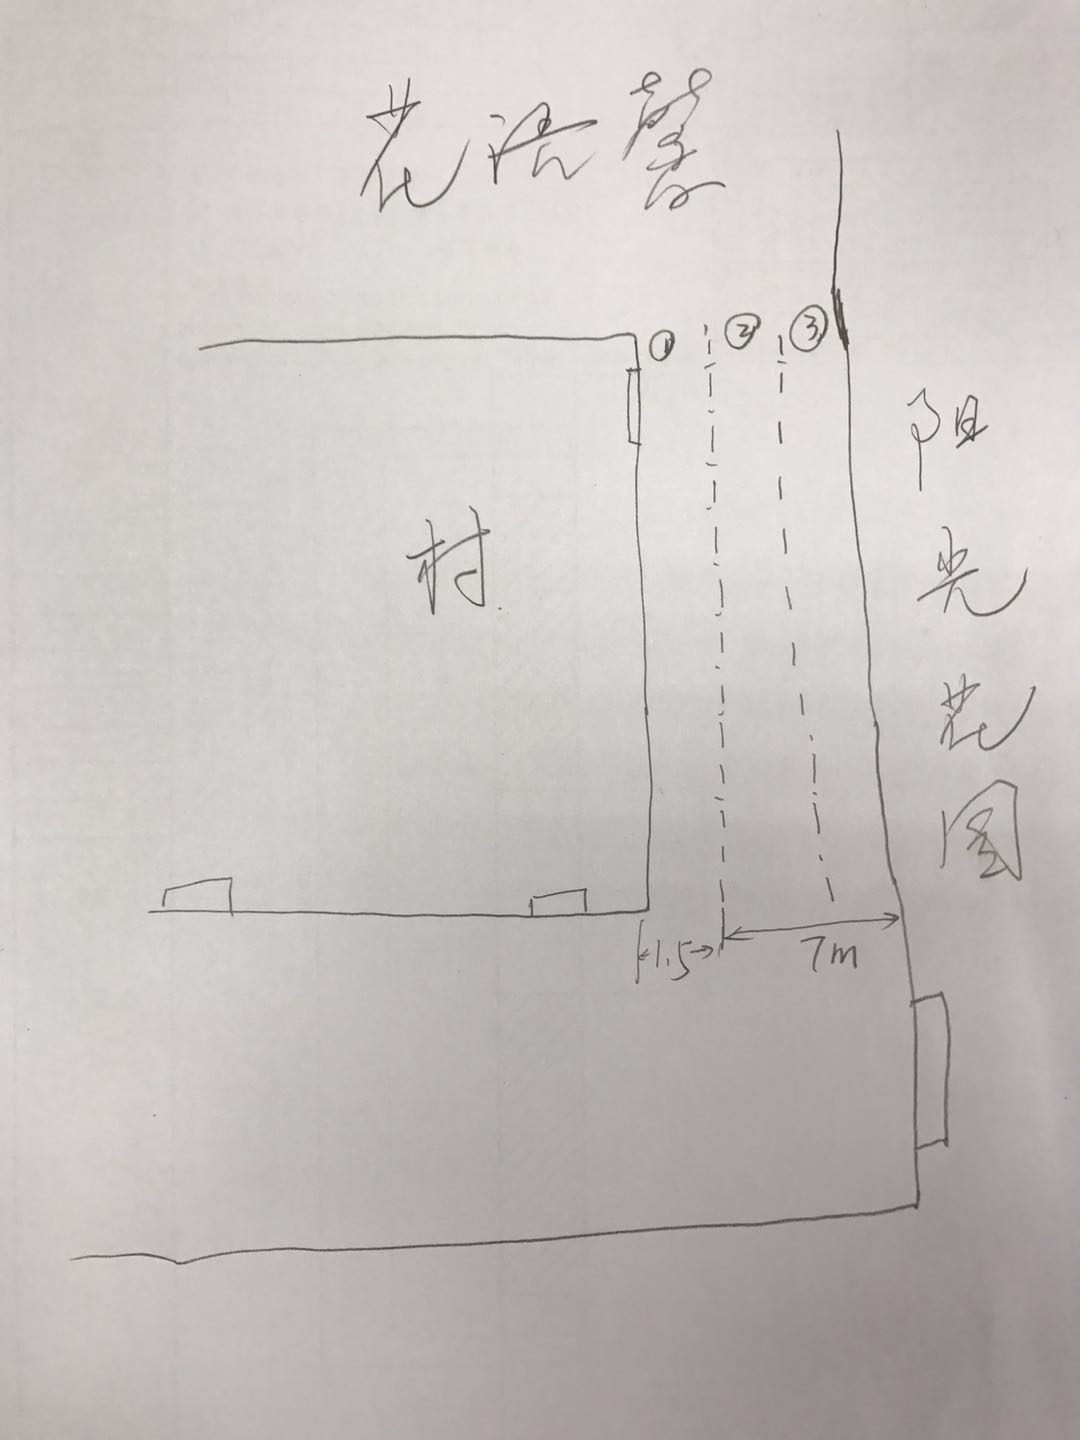 花语馨
① ② ③
村
阳光花园
1.5
7m